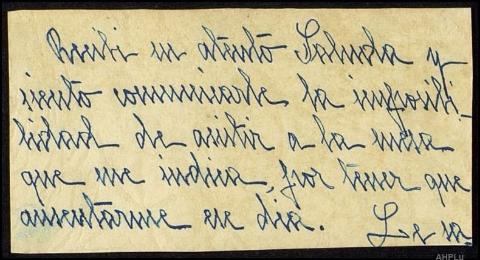 Recibí su atento Saluda y
siento comunicarle la imposibi-
lidad de asistir a la misa
que me indica, por tener que
ausentarme ese día. Le sa
AHPLu